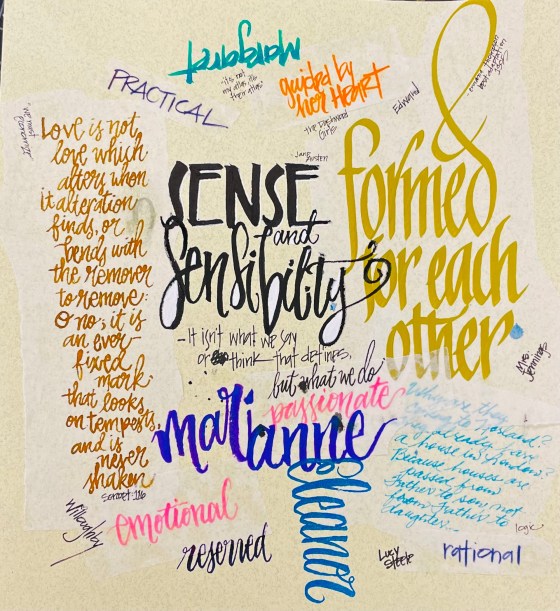 Margaret
"it's not
my atlas, it's
their atlas"
guided by
her Heart
PRACTICAL
the Dashwood
Girls
Edward
&
formed
for each
other
Jane Austen
SENSE
and
Sensibility
- It isn't what we say
or think that defines,
but what we do
Love is not
love which
alters when
it alteration
finds, or
bends with
the remover
to remove:
O no; it is
an ever-
fixed
mark
that looks
on tempests
and is
never
shaken
Sonnet 116
Mrs.
Jennings
passionate
marianne
eleanor
a house is
Because houses are
passed from
father to son, not
from father to
daughter...
logic
Willoughby
emotional
reserved
Lucy
Steele
rational